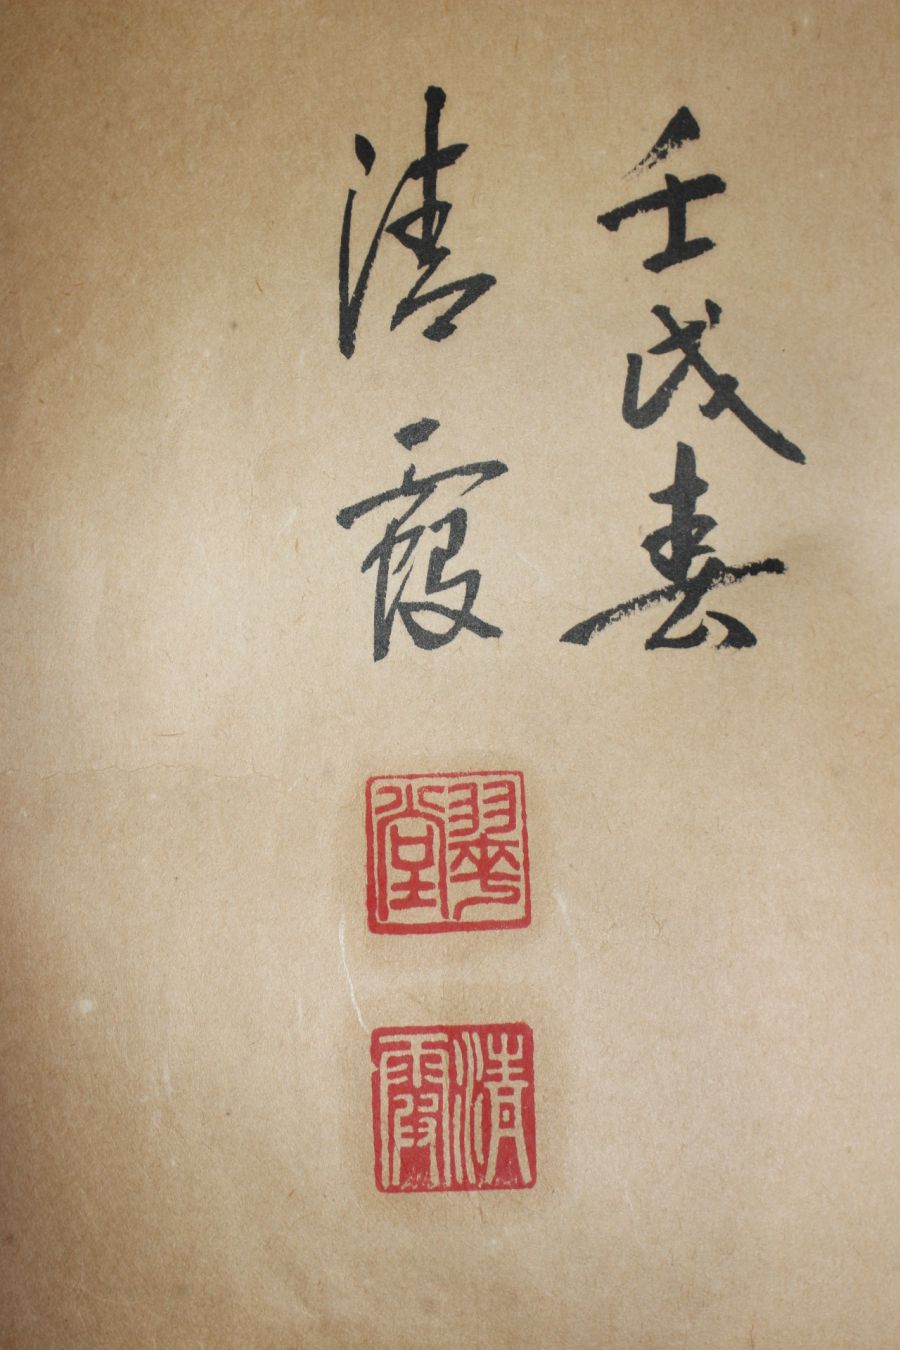 壬戌春
清霞
堂
清霞